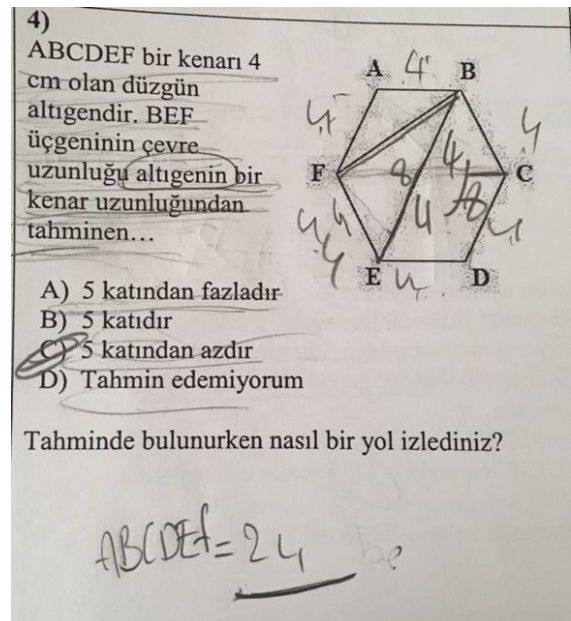 4)
ABCDEF bir kenarı 4
cm olan düzgün
altıgendir. BEF
üçgeninin çevre
uzunluğu altıgenin bir
kenar uzunluğundan
tahminen...
A 4 B
4 4
F 8 4 C
4 8 4
4 4
E 4 D
A) 5 katından fazladır
B) 5 katıdır
C) 5 katından azdır
D) Tahmin edemiyorum
Tahminde bulunurken nasıl bir yol izlediniz?
ABCDEf = 24